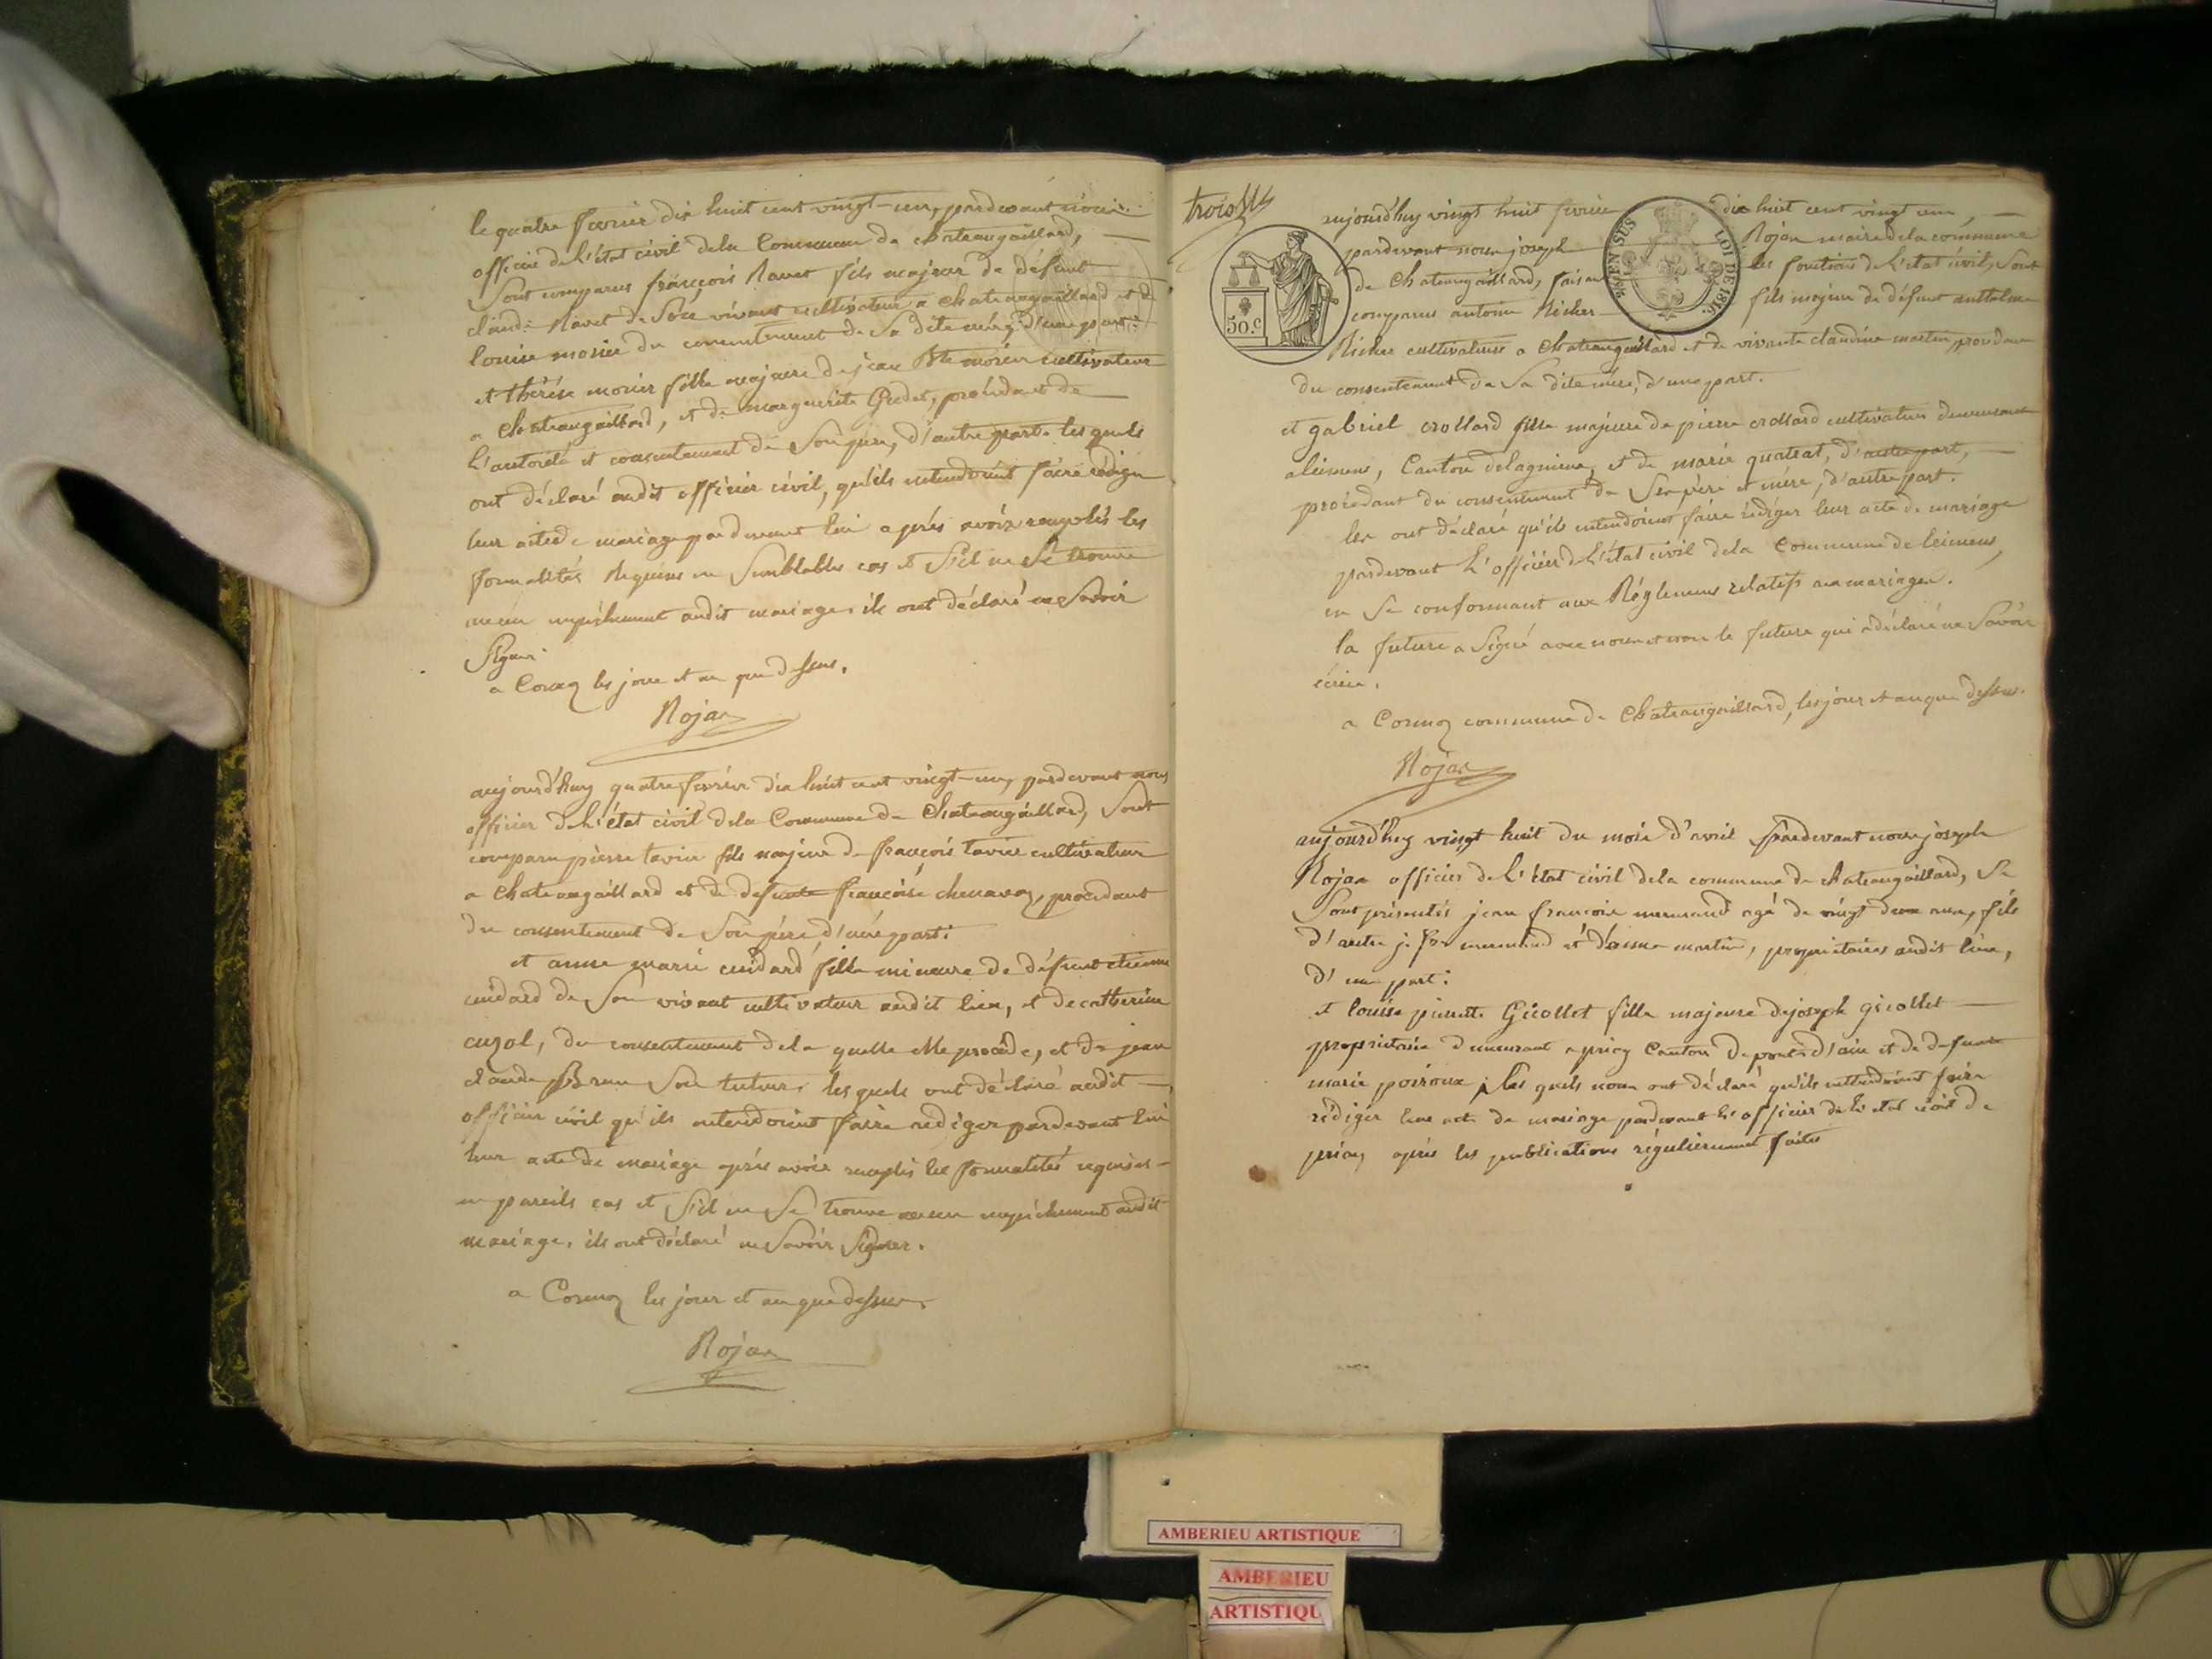 le quatre fevrier dix huit cent vingt-un, pardevant nous
officier de l'état civil dela Commune de chateaugaillard,
Sont comparus françois Ravet fils majeur de défunt
claude Ravet de Son vivant cultivateur a chateaugaillard et de
louise mosier du consentement de Sa dite mère, d'une part:
et thérèse morier fille majeure de jean Bte morier cultivateur
a chateaugaillard, et de marguerite Gudet, procédant de
l'autorité et consentement de Son père, d'autre part. les quels
ont déclaré audit officier civil, qu'ils entendoient faire rédiger
leur acte de mariage pardevant lui après avoir remplis les
formalités requises en Semblables cas et S'il ne Se trouve
aucun empêchement audit mariage. ils ont déclaré ne Savoir
Signer.
a Cormoz les jour et an que dessus.
Rojan
aujourd'huy quatre fevrier dix huit cent vingt-un, pardevant nous
officier de l'état civil dela Commune de Chateaugaillard, Sont
comparu pierre tavier fils majeur de françois tavier cultivateur
a chateaugaillard et de defunte françoise chenavaz, procedant
du consentement de Son père d'une part:
et anne marie cuidard fille mineure de défunt etienne
cuidard de Son vivant cultivateur audit lieu, et de catherine
cuzol, du consentement dela quelle elle procède, et de jean
claude Brun Son tuteur. les quels ont déclaré audit
officier civil qu'ils entendoient faire rediger pardevant lui
leur acte de mariage après avoir remplis les formalités requises
en pareils cas et S'il ne Se trouve aucun empêchement audit
mariage. ils ont déclaré ne Savoir Signer.
a Cormoz les jour et an que dessus.
Rojan
trois
aujourd'huy vingt huit fevrier dix huit cent vingt un,
pardevant nous joseph Rojan maire dela commune
de Chateaugaillard, faisant les fonctions de l'état civil, Sont
comparus antoine Richer fils majeur de défunt anthelme
Richer cultivateur a chateaugaillard et de vivante claudine martin, procedant
du consentement de Sa dite mère, d'une part.
et gabriel crollard fille majeure de pierre crollard cultivateur demeurant
a leimens, Canton delagnieu, et de marie quatrat, d'autre part,
procédant du consentement de Ses père et mère, d'autre part.
les ont déclaré qu'ils entendoient faire rédiger leur acte de mariage
pardevant l'officier de l'état civil dela Commune de leimens,
en Se conformant aux Réglemens relatifs aux mariages.
la future a Signé avec nous et non le future qui a déclaré ne Savoir
écrire.
a Cormoz commune de Chateaugaillard, les jour et an que dessus.
Rojan
50.C
EN SUS
LOI DE 1816.
aujourd'huy vingt huit du mois d'avril pardevant nous joseph
Rojan officier de l'état civil dela commune de chateaugaillard, Se
Sont présentés jean françois mermand agé de vingt deux ans, fils
d'autre je fois mermand et d'anne martin, propriétaires audit lieu,
d'une part:
et louise pierrette Gicollet fille majeure de joseph gicollet
propriétaire demeurant a priay Canton de pont d'ain et de defunte
marie poiroux; les quels nous ont déclaré qu'ils entendoient faire
rédiger leur acte de mariage pardevant l'officier de l'état civil de
priay après les publications régulièrement faites
AMBERIEU ARTISTIQUE
AMBERIEU
ARTISTIQU